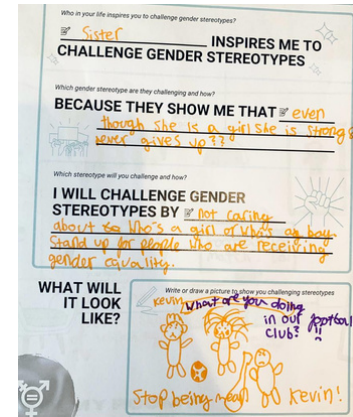 Who in your life inspires you to challenge gender stereotypes?
Sister INSPIRES ME TO
CHALLENGE GENDER STEREOTYPES
Which gender stereotype are they challenging and how?
BECAUSE THEY SHOW ME THAT even
though she is a girl she is strong &
never gives up??
Which stereotype will you challenge and how?
I WILL CHALLENGE GENDER
STEREOTYPES BY not caring
about who's a girl or who's a boy.
Stand up for people who are receiving
gender equality.
WHAT WILL
IT LOOK
LIKE?
Write or draw a picture to show you challenging stereotypes
kevin
what are you doing
in our football
club?!!
Stop being mean Kevin!